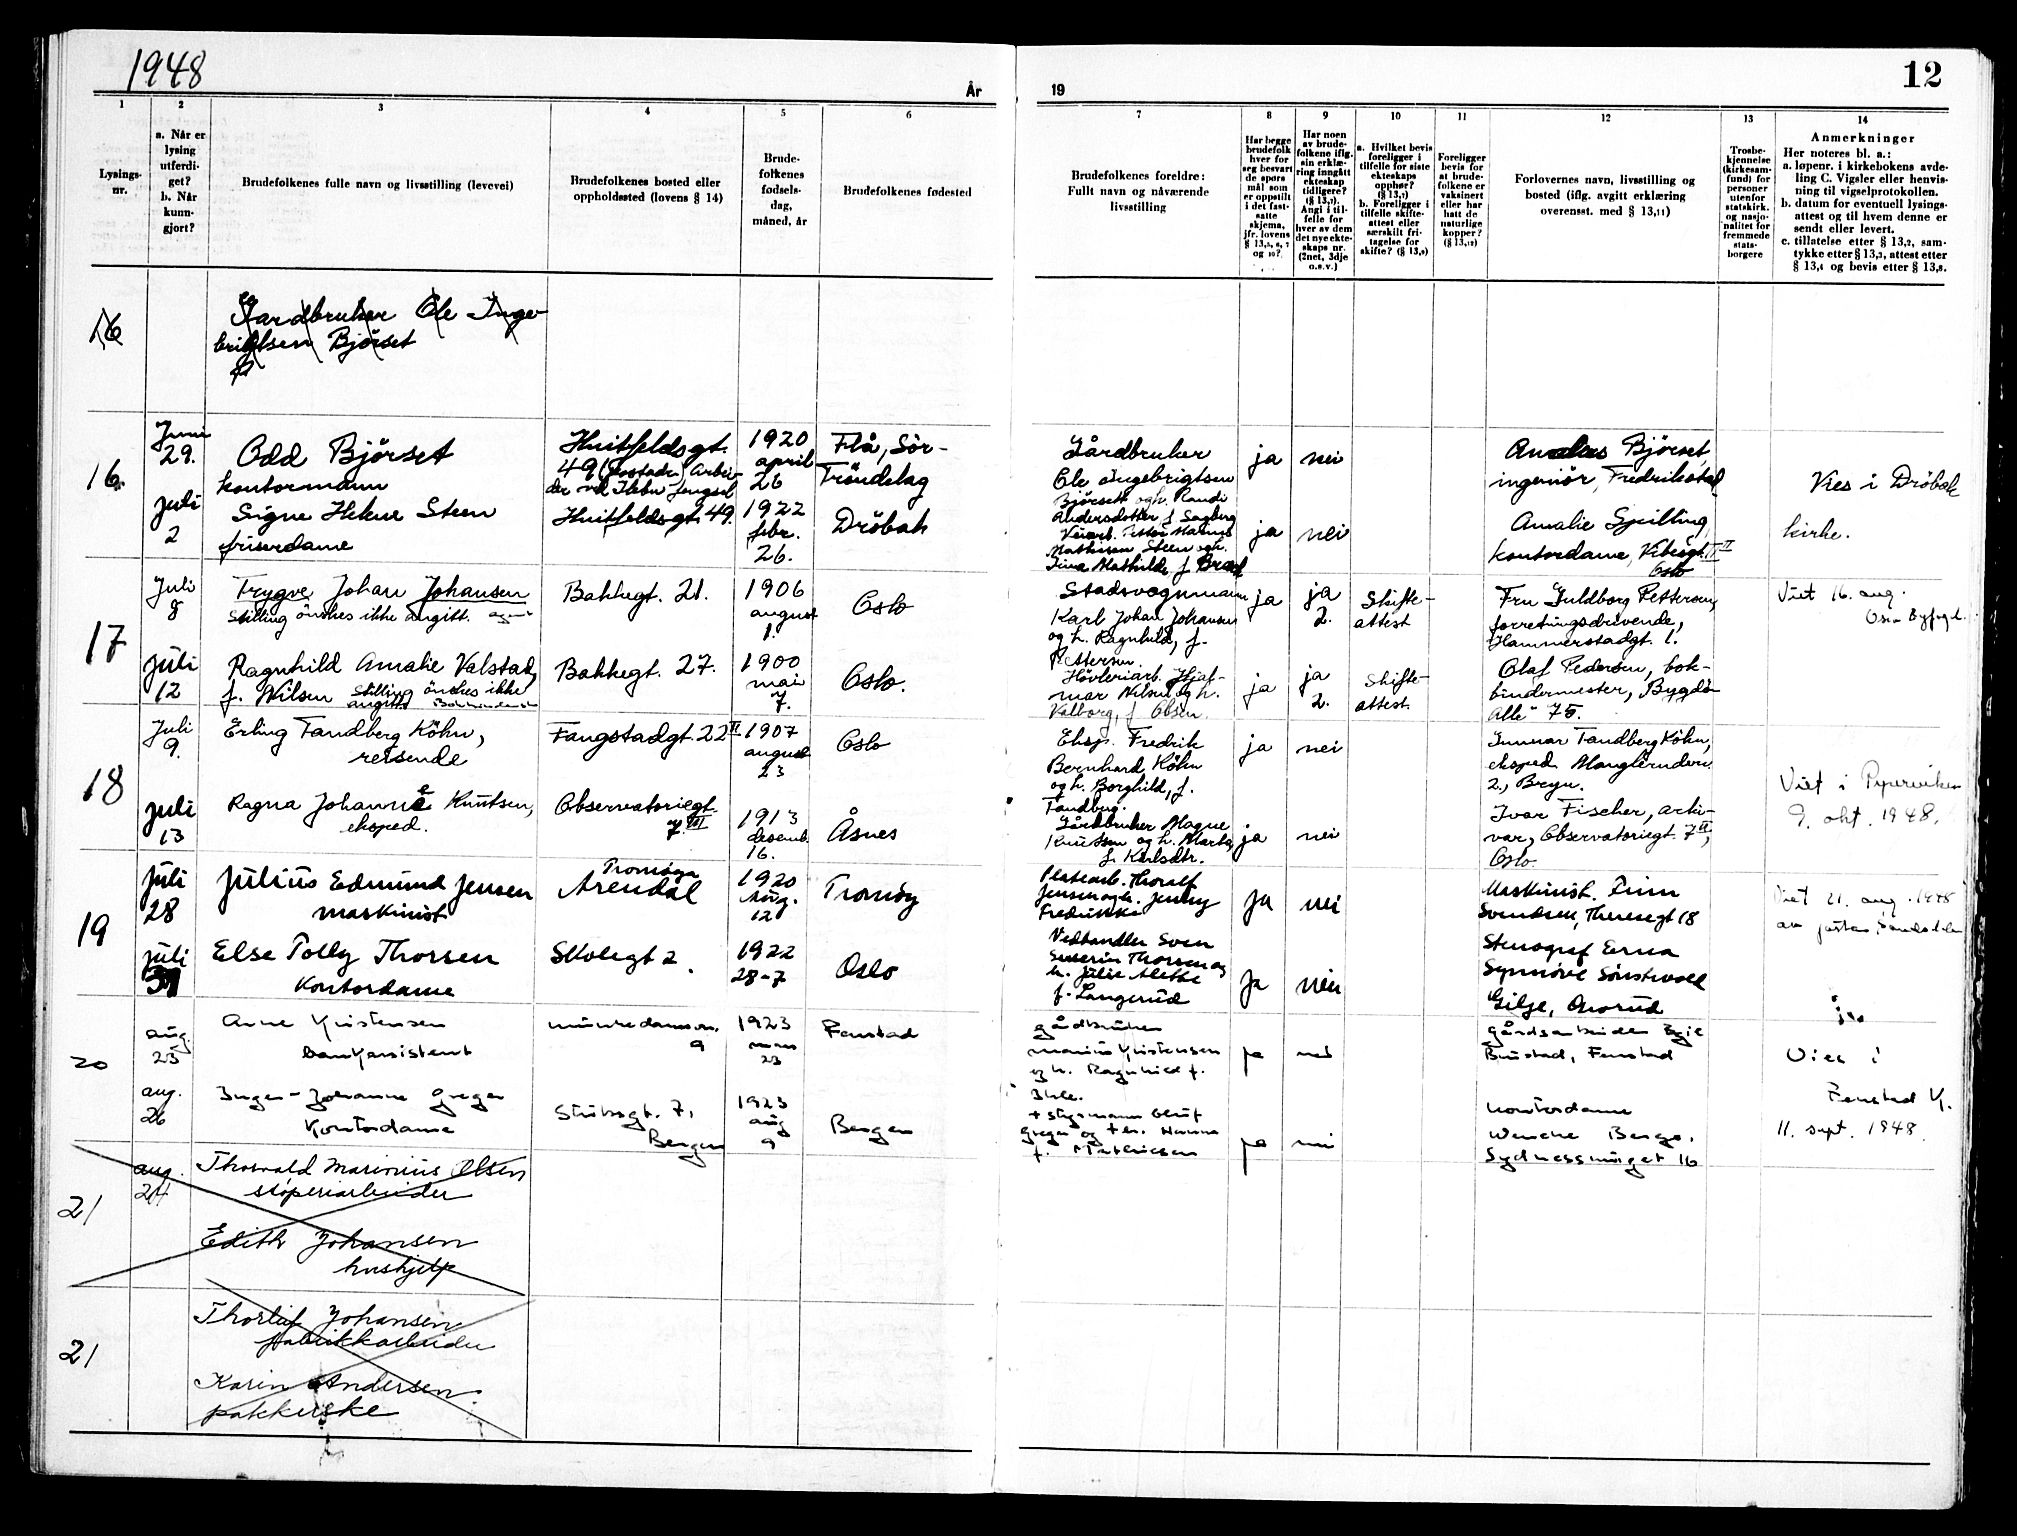 1948
År
19
12
1
2
3
4
5
6
7
8
9
10
11
12
13
14
Lysings-
nr.
a. Når er
lysing
utferdi-
get?
b. Når
kunn-
gjort?
Brudefolkenes fulle navn og livsstilling (levevei)
Brudefolkenes bosted eller
oppholdssted (lovens § 14)
Brude-
folkenes
fødsels-
dag,
måned, år
Brudefolkenes fødested
Brudefolkenes foreldre:
Fullt navn og nåværende
livsstilling
Har begge
brudefolk
hver for
seg besvart
de spørs
mål som
er oppstilt
i det fast-
satte
skjema,
jfr. lovens
§ 13,5, 6, 7
og 10?
Har noen
av brude-
folkene iflg.
sin erklæ-
ring inngått
ekteskap
tidligere?
(§ 13,7).
Angi i til-
felle for
hver av dem
det nye ekte-
skaps nr.
(2net, 3dje
o.s.v.)
a. Hvilket bevis
foreligger i
tilfelle for siste
ekteskaps
opphør?
(§ 13,7)
b. Foreligger i
tilfelle skifte-
attest eller
særskilt fri-
tagelse for
skifte? (§ 13,9)
Foreligger
bevis for
at brude-
folkene er
vaksinert
eller har
hatt de
naturlige
kopper?
(§ 13,12)
Forlovernes navn, livsstilling og
bosted (iflg. avgitt erklæring
overensst. med § 13,11)
Trosbe-
kjennelse
(kirkesam-
fund) for
personer
utenfor
statskirk.
og nasjo-
nalitet for
fremmede
stats-
borgere
Anmerkninger
Her noteres bl. a.:
a. løpenr. i kirkebokens avde-
ling C. Vigsler eller henvis-
ning til vigselprotokollen.
b. datum for eventuell lysings-
attest og til hvem denne er
sendt eller levert.
c. tillatelse etter § 13,2, sam-
tykke etter § 13,3, attest etter
§ 13,4 og bevis etter § 13,8.
16
Gardbruker Ole Inge-
brigtsen Bjørset
16.
Juni
29.
Odd Bjørset
kontormann
Huitfeldsgt.
49
1920
april
26
Flå, Sør-
Trøndelag
Gårdbruker
Ole Ingebrigtsen
Bjørset og h. Randi
Andersdotter f. Sagberg
ja
nei
Bjørset
ingeniør, Fredrikstad
Vies i Drøbak
kirke.
juli
2
Signe Helene Steen
friserdame
Huitfeldsgt. 49.
1922
febr.
26.
Drøbak
Mathisen Steen og h.
ja
nei
Amalie Spilling,
kontordame, Vibesgt.
Oslo
17
Juli
8
Trygve Johan Johansen
Stilling ønskes ikke angitt.
Bakkegt. 21.
1906
august
1.
Oslo
Stadsvognmann
Karl Johan Johansen
og h. Ragnhild, f.
Pettersen.
ja
ja
2.
Skifte-
attest
Fru Guldborg Pettersen,
forretningsdrivende,
Hammerstadgt. 1.
Viet 16. aug.
juli
12
Ragnhild Amalie Valstad,
f. Nilsen Stilling ønskes ikke
angitt
Bakkegt. 27.
1900
mai
7.
Oslo.
Høvleriarb. Hjal-
mar Nilsen og h.
Valborg, f. Olsen.
ja
ja
2.
Skifte-
attest.
Olaf Pedersen, bok-
bindermester, Bygdø
Alle 75.
18
Juli
9.
Erling Tandberg Köhn,
reisende
Fangstadgt. 22 II
1907
august
23
Oslo
Eksp. Fredrik
Bernhard Köhn
og h. Borghild, f.
Tandberg.
ja
nei
Gunnar Tandberg Köhn,
eksped. Manglerudvn.
2., Bryn.
Viet i Pipervikens
9. okt. 1948.
juli
13
Ragna Johanne Knutsen,
eksped.
Observatoriegt.
7 III
1913
desemb.
16.
Åsnes
Gårdbruker Magne
Knutsen og h. Marta,
f. Karlsdtr.
ja
nei
Ivar Fischer, arki-
var, Observatoriegt. 7 II,
Oslo.
19
juli
28
Julius Edmund Jensen
maskinist
Tromøya
Arendal
1920
Aug.
12
Tromøy
Platearb. Thoralf
Jensen og h. Jenny
Fredrikke
ja
nei
Maskinist. Finn
Svendsen, Theresegt 18
Viet 21. aug. 1948
juli
31
Else Polly Thorsen
Kontordame
Skolegt 2.
1922
28-7
Oslo
Vedhandler Sven
Severin Thorsen og
h. Julie Alethe
f. Langerud
ja
nei
Stenograf Erna
Synnøve Sønstevold
Gilje,
20
aug.
23
Arne Kristensen
bankassistent
9
1923
mars
23
Fenstad
gårdbruker
Marius Kristensen
og h. Ragnhild f.
Ihle.
ja
nei
gårdsarbeider
Bustad, Fenstad
Vies i
Fenstad K.
11. sept. 1948.
aug.
26
Inger-Johanne Greger
Kontordame
7,
Bergen
1923
aug
9
Bergen
Greger og
f. Mathiesen
ja
nei
Kontordame
Wenche Berge.
Sydnessmuget 16
21
aug.
24
Thorvald Marinius Olsen
støperiarbeider
Edith Johansen
hushjelp
21
Thorleif Johansen
fabrikkarbeider
Karin Andersen
pakkerske